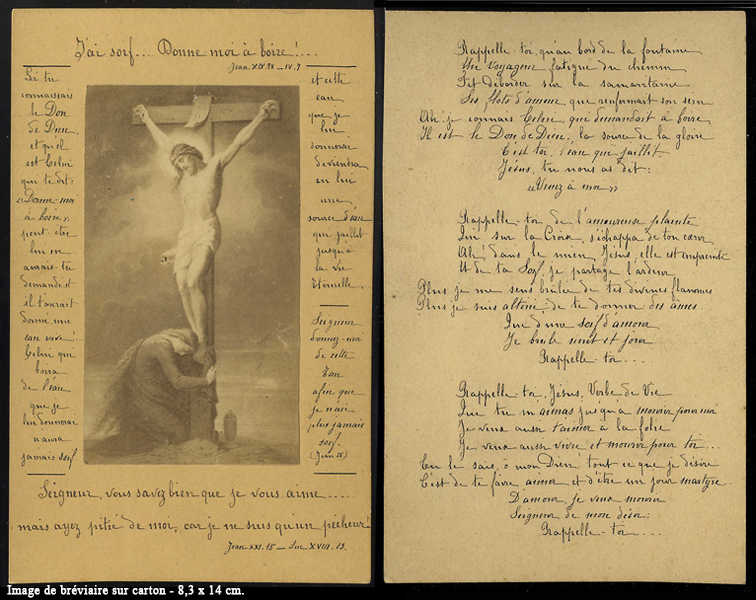 J'ai soif.... Donne moi à boire!....
Jean XIX. 28 — IV. 7
Si tu
connaissais
le Don
de Dieu,
et quel
est Celui
qui te dit:
«Donne-moi
à boire».
peut-être
lui en
aurais-tu
demandé et
il t'aurait
donné une
eau vive!
Celui qui
boira
de l'eau
que je
lui donnerai
n'aura
jamais soif.
et cette
eau
que je
lui
donnerai
deviendra
en lui
une
source d'eau
qui jaillit
jusqu'à
la vie
éternelle.
Seigneur
donnez-moi
de cette
Eau
afin que
je n'aie
plus jamais
soif.
(Jean IV)
Seigneur, vous savez bien que je vous aime.....
mais ayez pitié de moi, car je ne suis qu'un pécheur!
Jean XXI. 15 — Luc XVIII. 13.
Rappelle-toi, qu'au bord de la fontaine
Un Voyageur fatigué du chemin
Fit déborder sur la samaritaine
Les flots d'amour que renfermait son sein
Ah! je connais Celui qui demandait à boire
Il est le Don de Dieu, la source de la gloire
C'est toi, l'eau qui jaillit
Jésus, tu nous as dit:
«Venez à moi»
Rappelle-toi de l'amoureuse plainte
Qui sur la Croix, s'échappa de ton cœur
Ah! dans le mien, Jésus, elle est empreinte
Et de ta Soif, je partage l'ardeur
Plus je me sens brûlée de tes divines flammes
Plus je suis altérée de te donner des âmes
Que d'une soif d'amour
Je brûle nuit et jour
Rappelle-toi...
Rappelle-toi, Jésus, Verbe de Vie
Que tu m'aimas jusqu'à mourir pour moi
Je veux aussi t'aimer à la folie
Je veux aussi vivre et mourir pour toi...
Tu le sais, ô mon Dieu! tout ce que je désire
C'est de te faire aimer et d'être un jour martyre..
D'amour, je veux mourir
Seigneur de mon désir:
Rappelle-toi....
Image de bréviaire sur carton - 8,3 x 14 cm.